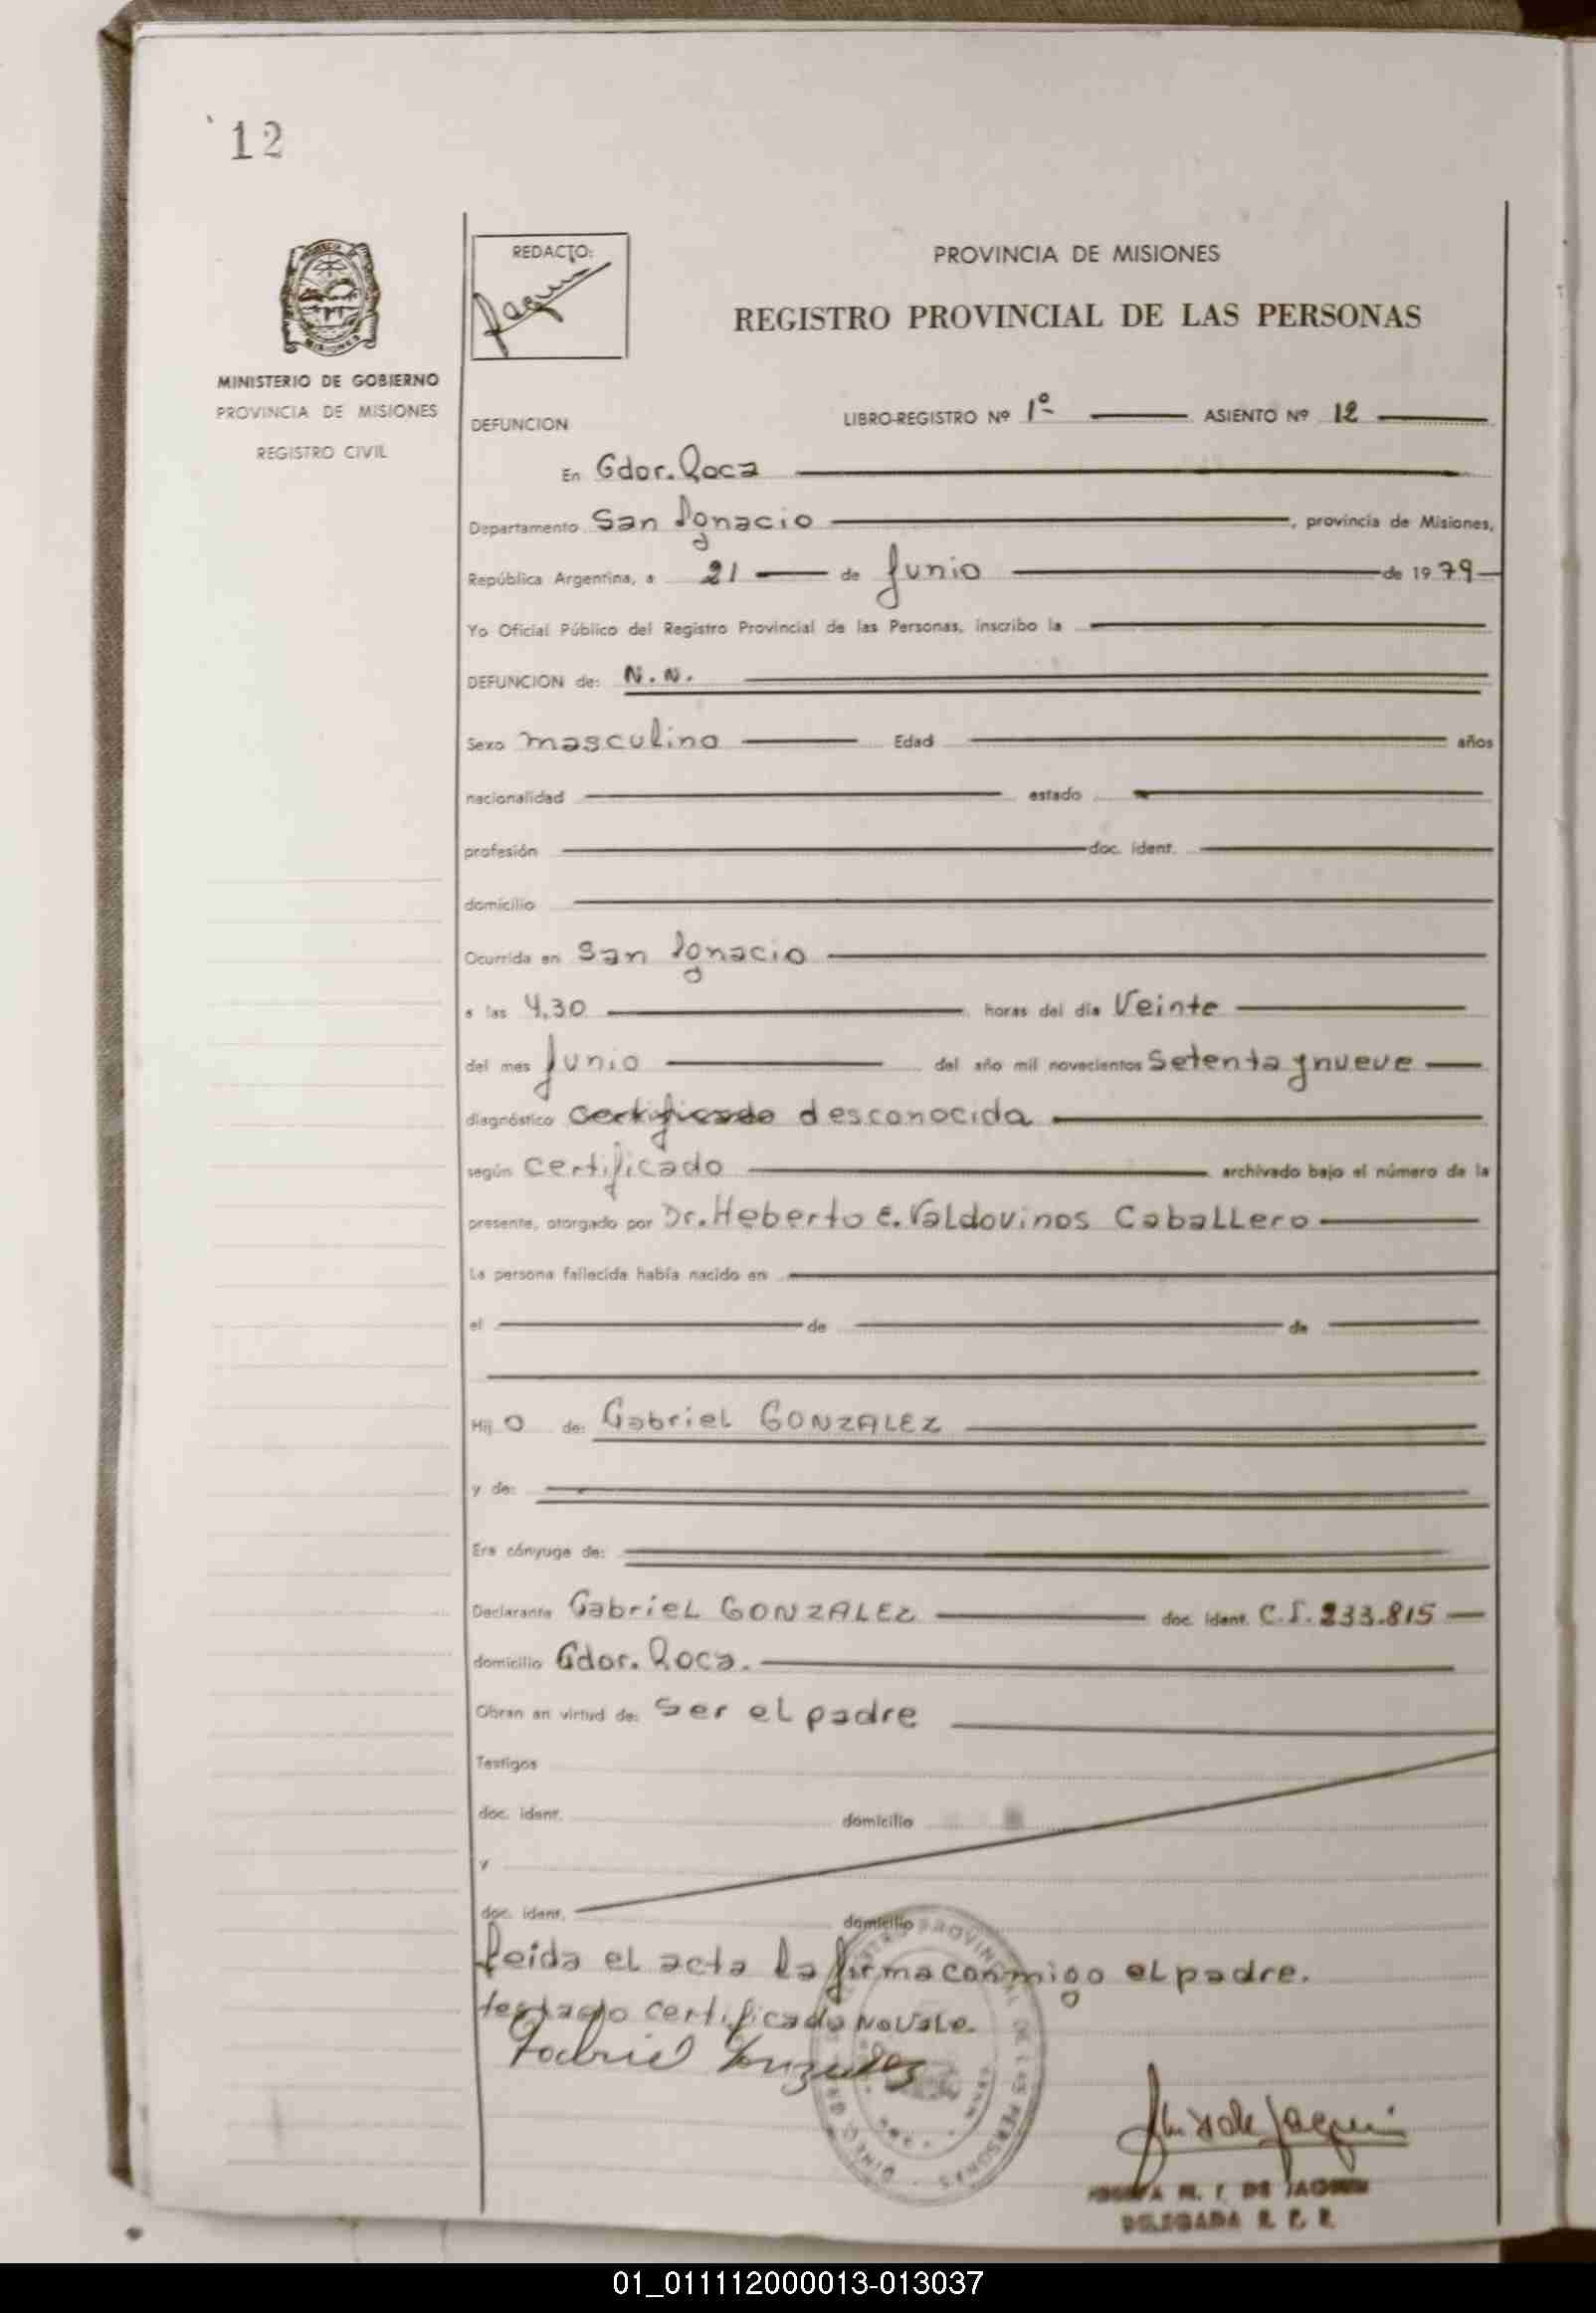 12
MINISTERIO DE GOBIERNO
PROVINCIA DE MISIONES
REGISTRO CIVIL
REDACTO:
PROVINCIA DE MISIONES
REGISTRO PROVINCIAL DE LAS PERSONAS
DEFUNCION LIBRO-REGISTRO Nº 1º ASIENTO Nº 12
En Gdor. Roca
Departamento San Ignacio, provincia de Misiones,
República Argentina, a 21 de Junio de 1979
Yo Oficial Público del Registro Provincial de las Personas, inscribo la
DEFUNCION de: N.N.
Sexo masculino Edad años
nacionalidad estado
profesión doc. ident.
domicilio
Ocurrida en San Ignacio
a las 4,30 horas del día Veinte
del mes Junio del año mil novecientos Setenta y nueve
diagnóstico certificado desconocida
según certificado archivado bajo el número de la
presente, otorgado por Dr. Heberto E. Valdovinos Caballero
La persona fallecida había nacido en
el de de
Hijo de: Gabriel GONZALEZ
y de:
Era cónyuge de:
Declarante Gabriel GONZALEZ doc. ident. C.I. 233.815
domicilio Gdor. Roca.
Obran en virtud de: Ser el padre
Testigos
doc. ident. domicilio
y
doc. ident. domicilio
Leida el acta la firma conmigo el padre.
testado certificado no vale.
Gabriel Gonzalez
M. I. DE JAQUIN
DELEGADA R. P. P.
01_011112000013-013037